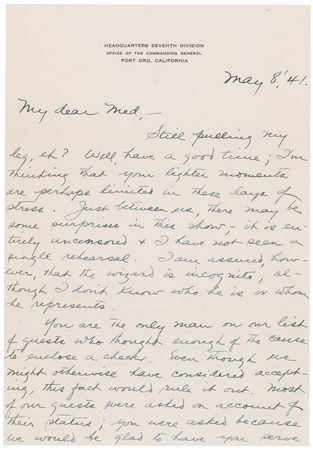 HEADQUARTERS SEVENTH DIVISION
OFFICE OF THE COMMANDING GENERAL
FORT ORD, CALIFORNIA
May 8, '41.
My dear Med, -
Still pulling my
leg, eh? Well, have a good time; I'm
thinking that your lighter moments
are perhaps limited in these days of
stress. Just between us, there may be
some surprises in this show, - it is en-
tirely uncensored & I have not seen a
single rehearsal. I am assured, how-
ever, that the wizard is incognito, al-
though I don't know who he is or whom
he represents.
You are the only man on our list
of guests who thought enough of the cause
to enclose a check. Even though we
might otherwise have considered accept-
ing, this fact would rule it out. Most
of our guests were asked on account of
their status; you were asked because
we would be glad to have you serve